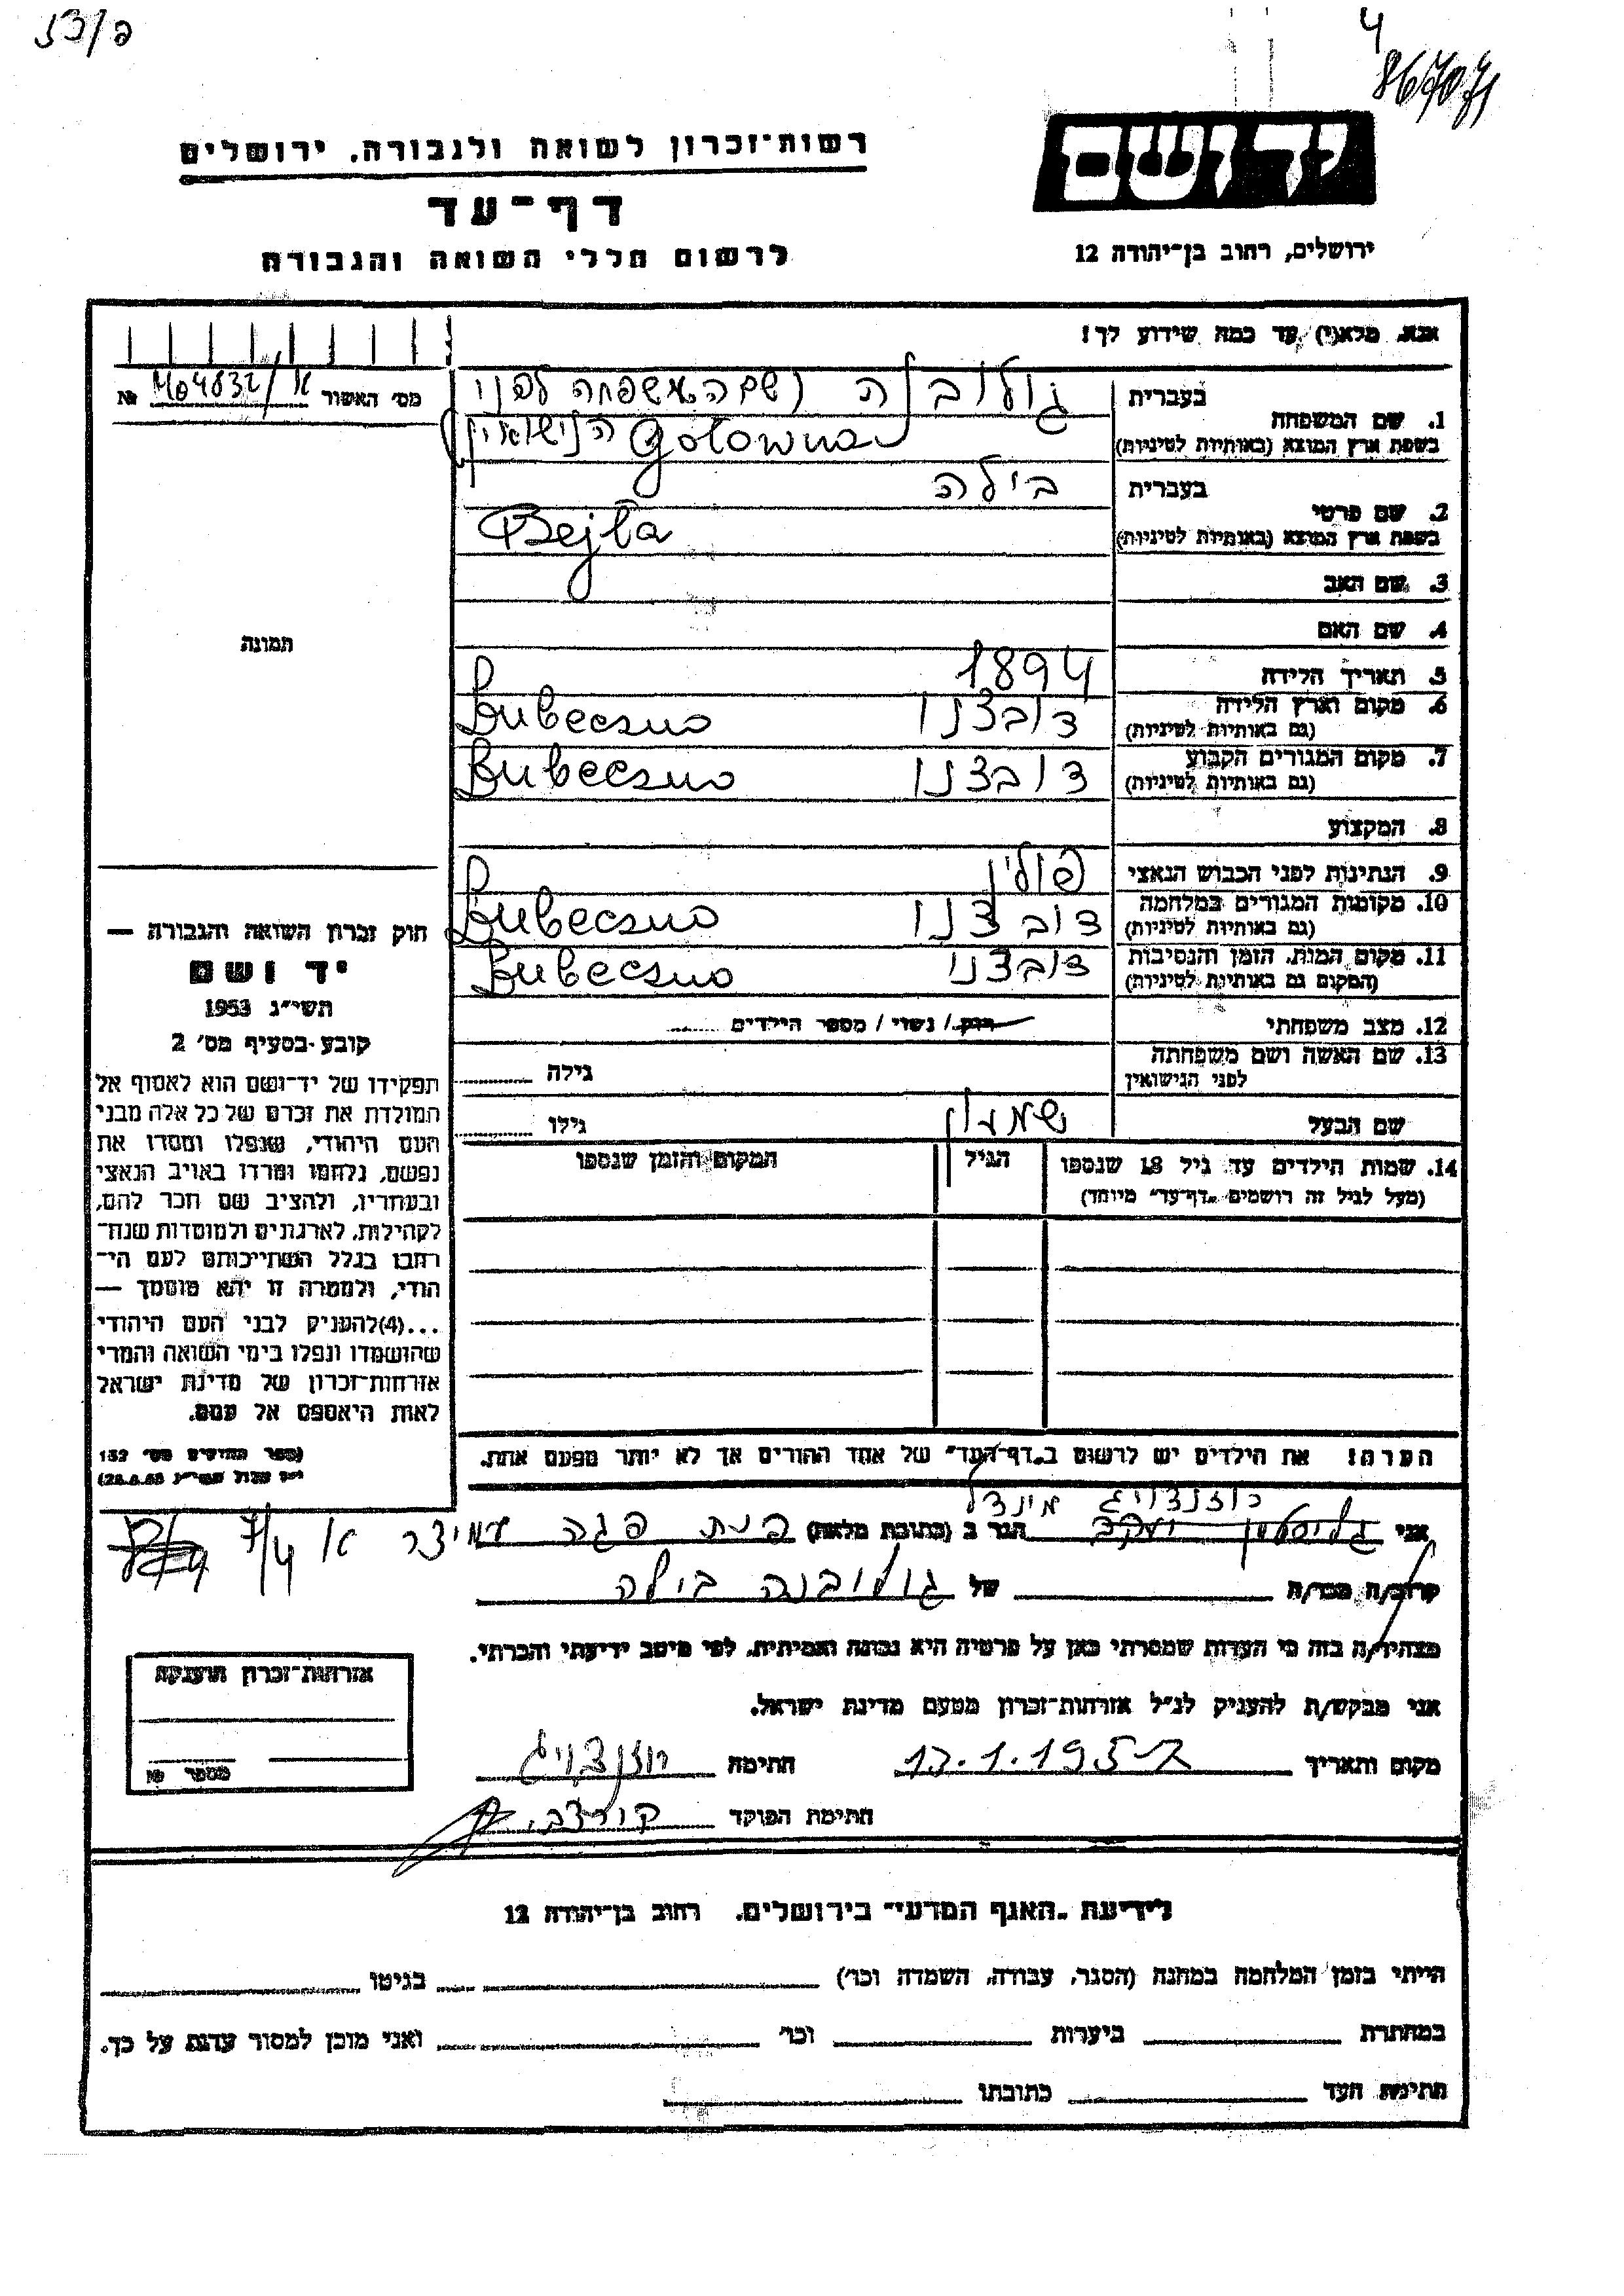 4
867071
רשות־זכרון לשואה ולגבורה, ירושלים
יד ושם
דף־עד
לרשום חללי השואה והגבורה
ירושלים, רחוב בן־יהודה 12
אנא, מלא(י) עד כמה שידוע לך!
מס׳ האשור א/M04832 №
1. שם המשפחה
בעברית גולובנה (שם המשפחה לפני
בשפת ארץ המוצא (באותיות לטיניות) Gołowna הנישואין)
2. שם פרטי
בעברית בילה
בשפת ארץ המוצא (באותיות לטיניות) Bejla
3. שם האב
4. שם האם
תמונה
5. תאריך הלידה 1894
6. מקום וארץ הלידה דובצנו
(גם באותיות לטיניות) Dubeczno
7. מקום המגורים הקבוע דובצנו
(גם באותיות לטיניות) Dubeczno
8. המקצוע
9. הנתינות לפני הכבוש הנאצי פולין
10. מקומות המגורים במלחמה דובצנו
(גם באותיות לטיניות) Dubeczno
11. מקום המות, הזמן והנסיבות דובצנו
(המקום גם באותיות לטיניות) Dubeczno
12. מצב משפחתי רוק/ נשוי / מספר הילדים
13. שם האשה ושם משפחתה
לפני הנישואין
גילה
שם הבעל שמעון
גילו
14. שמות הילדים עד גיל 18 שנספו
(מעל לגיל זה רושמים „דף־עד" מיוחד)
הגיל
המקום והזמן שנספו
חוק זכרון השואה והגבורה —
יד ושם
תשי״ג 1953
קובע בסעיף מס׳ 2
תפקידו של יד־ושם הוא לאסוף אל
המולדת את זכרם של כל אלה מבני
העם היהודי, שנפלו ומסרו את
נפשם, נלחמו ומרדו באויב הנאצי
ובעוזריו, ולהציב שם וזכר להם,
לקהילות, לארגונים ולמוסדות שנח־
רבו בגלל השתייכותם לעם הי־
הודי, ולמטרה זו יהא מוסמך —
...(4)להעניק לבני העם היהודי
שהושמדו ונפלו בימי השואה והמרי
אזרחות־זכרון של מדינת ישראל
לאות היאספם אל עמם.
(ספר החוקים מס׳ 132
הערה! את הילדים יש לרשום ב„דף־העד" של אחד ההורים אך לא יותר מפעם אחת.
רוזנצויג מינדל
אני הגר ב (כתובת מלאה) פגה א 7/4
קרוב/ה מכר/ה של גולובנה בילה
מצהיר/ה בזה כי העדות שמסרתי כאן על פרטיה היא נכונה ואמיתית, לפי מיטב ידיעתי והכרתי.
אני מבקש/ת להעניק לנ״ל אזרחות־זכרון מטעם מדינת ישראל.
מקום ותאריך חתימה רוזנצויג
חתימת הפוקד
אזרחות־זכרון הוענקה
מספר №
לידיעת „האגף המדעי" בירושלים, רחוב בן־יהודה 12
הייתי בזמן המלחמה במחנה (הסגר, עבודה, השמדה וכו׳) בגיטו
במחתרת ביערות וכו׳ ואני מוכן למסור עדות על כך.
חתימת העד כתובתו